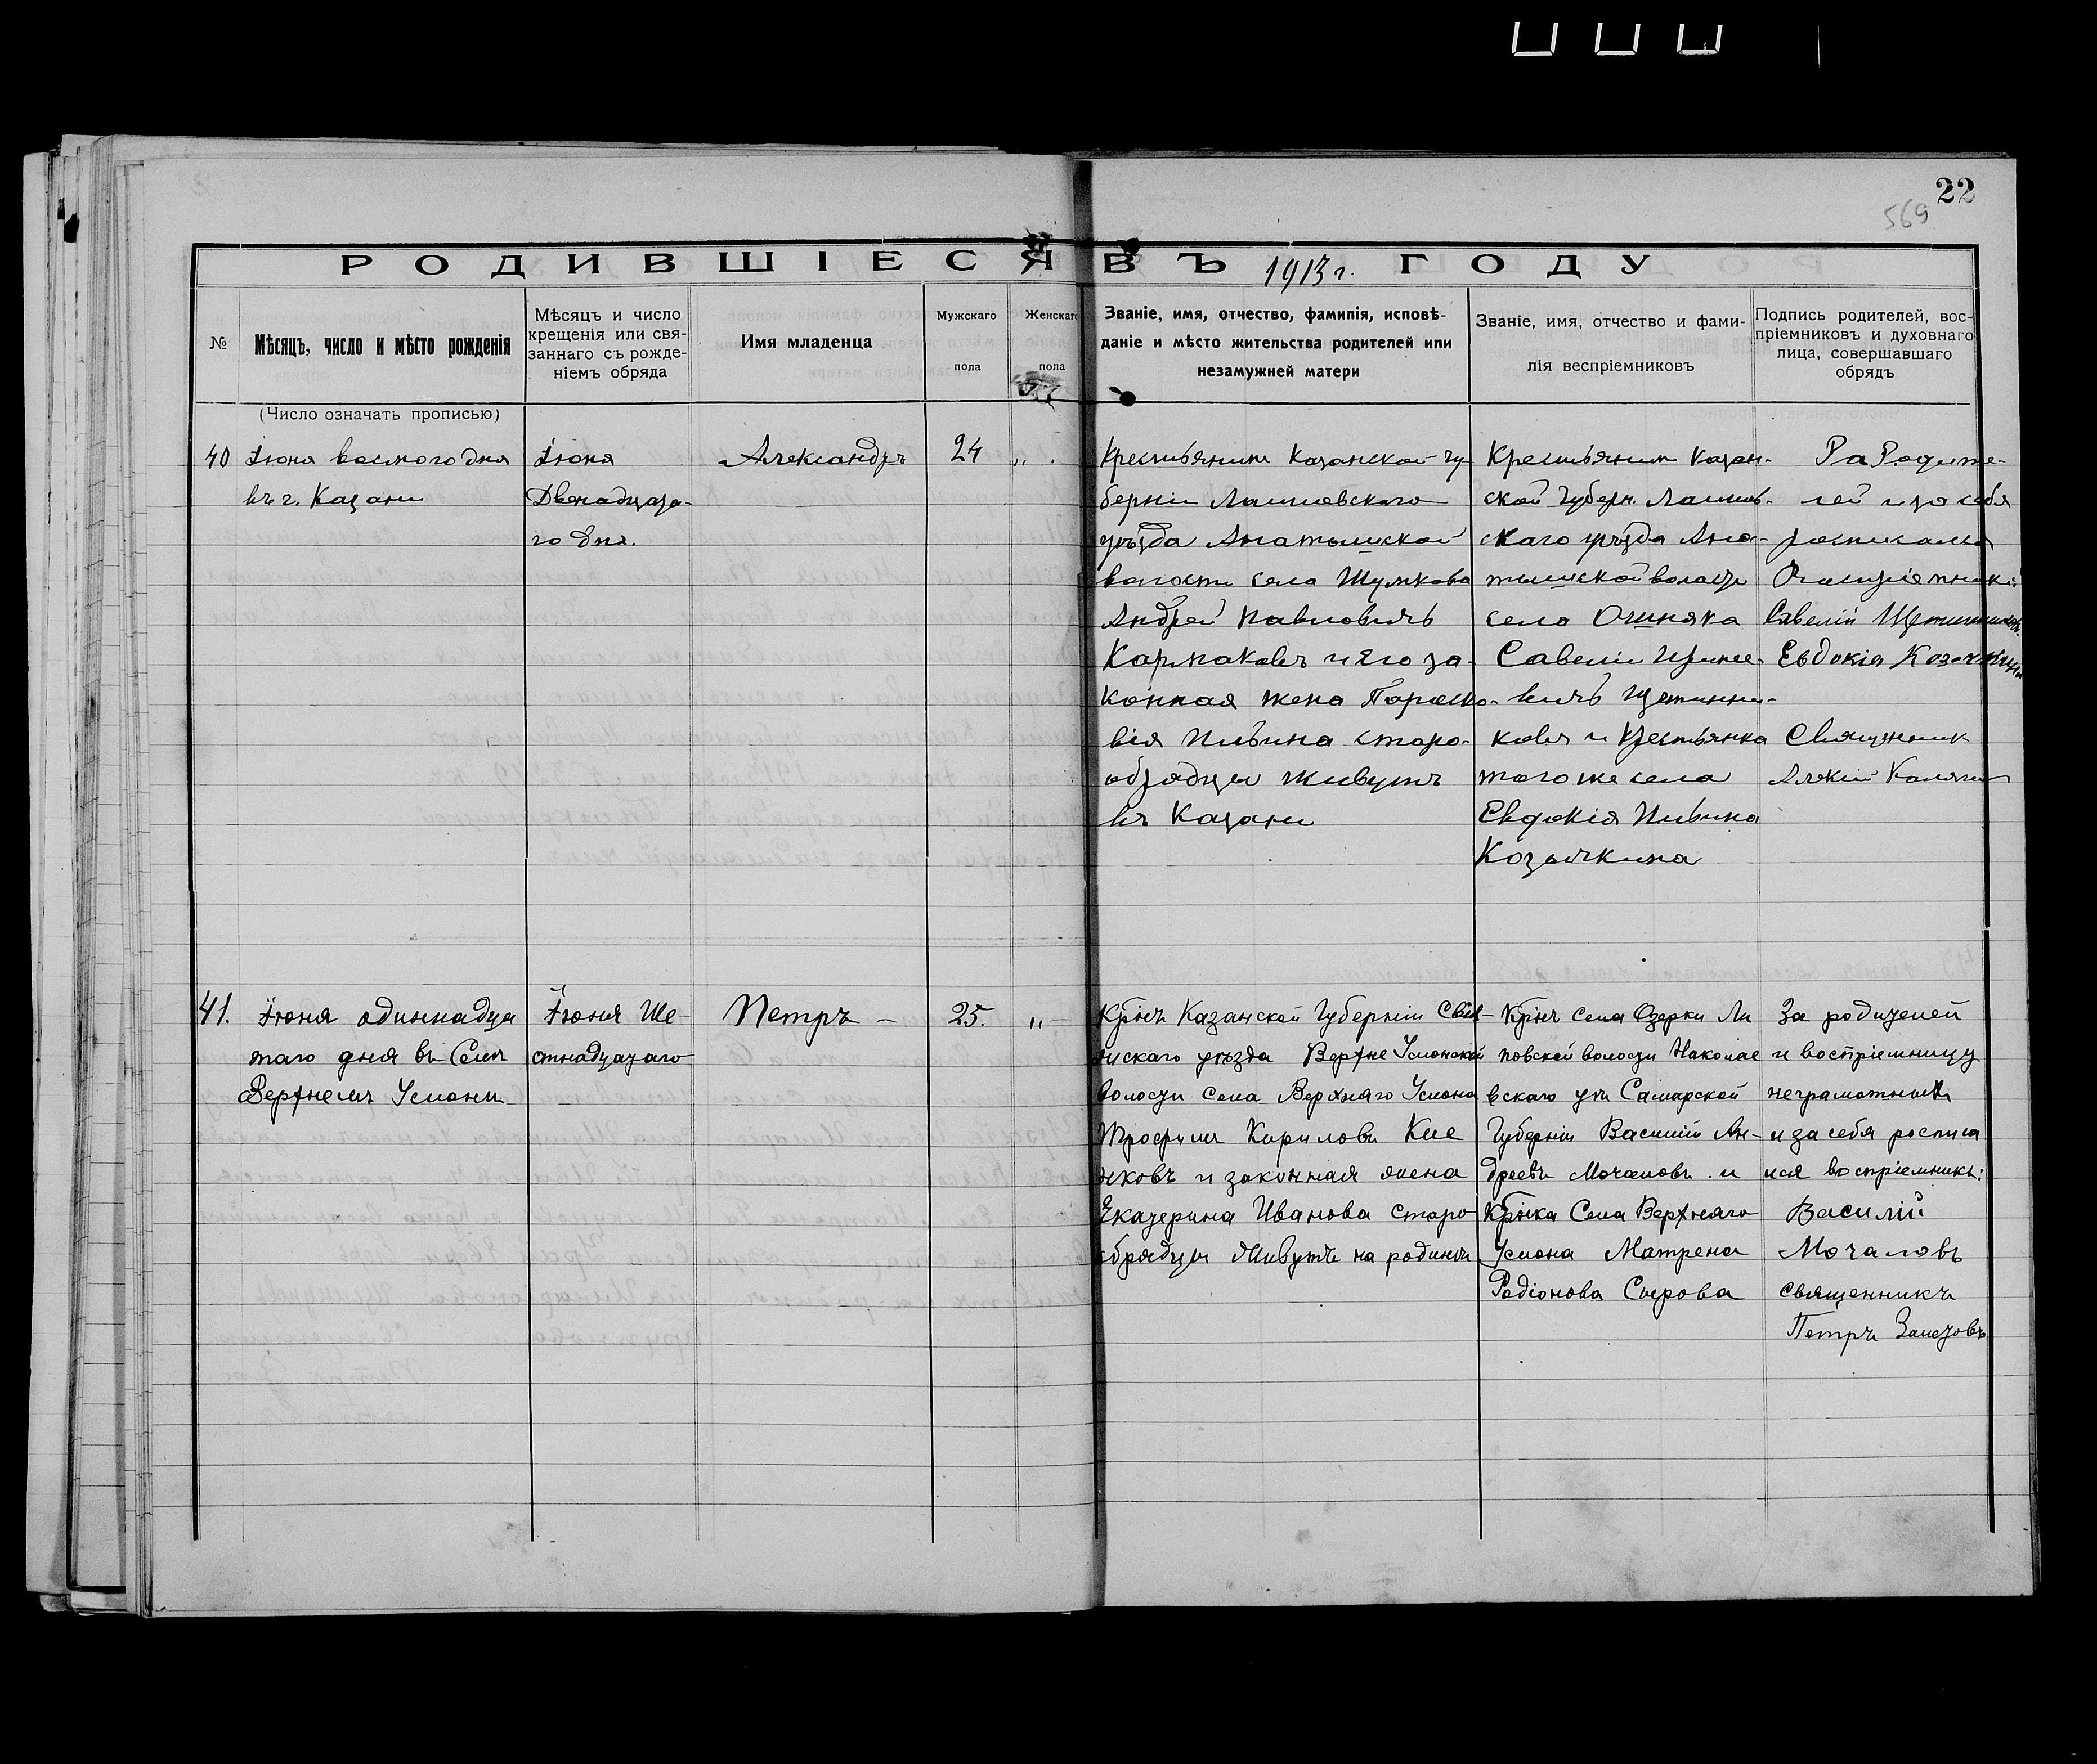 22
569
РОДИВШІЕСЯ ВЪ 1913 г. ГОДУ
№
Мѣсяцъ, число и мѣсто рожденія
(Число означать прописью)
Мѣсяцъ и число
крещенія или свя-
заннаго съ рожде-
ніемъ обряда
Имя младенца
Мужскаго
пола
Женскаго
пола
Званіе, имя, отчество, фамилія, исповѣ-
даніе и мѣсто жительства родителей или
незамужней матери
Званіе, имя, отчество и фами-
лія веспріемниковъ
Подпись родителей, вос-
пріемниковъ и духовнаго
лица, совершавшаго
обрядъ
40
Іюня восмого дня
въ г. Казани
Іюня
Двенадцата-
го дня.
Александръ
24
„ .
Крестьянинъ Казанской гу
берніи Лаишевскаго
уѣзда Анатышской
волости села Шумкова
Андрей Павловичъ
Кармаковъ и его за-
конная жена Параско-
вія Ильина старо-
обрядцы живутъ
въ Казани
Крестьянин Казан-
ской Губерн. Лаишев-
скаго уѣзда Ана-
тышской волости
села Ошняка
Савелій
Щетинни-
ковъ и Крестьянка
того же села
Евдокія Ильина
Козычкина
За Родите-
лей и за себя
росписался
Савелій Щетинниковъ
Евдокія
Священник
Алекій
41.
Іюня одиннадца
таго дня въ Селѣ
Верхнемъ Услонѣ
Іюня Ше-
стнадцатаго
Петръ –
25.
„ –
Крѣнъ Казанской Губерніи Свія-
жскаго уѣзда Верхне Услонской
волости села Верхняго Услона
Трофимъ Кирилловъ Кле
и законная жена
Екатерина Иванова старо
обрядцы Живутъ на родинѣ
Крѣнъ села Озерки Ли
повской волости Николае
вскаго уѣ Самарской
Губерніи Василій Ан-
дреевъ Мочаловъ и
Крѣнка Села Верхняго
Услона Матрена
Радіонова Сырова
За родителей
и воспріемницу
неграмотныхъ
и за себя росписа
лся воспріемникъ:
Василій
Мочаловъ
священникъ
Петръ Залетовъ